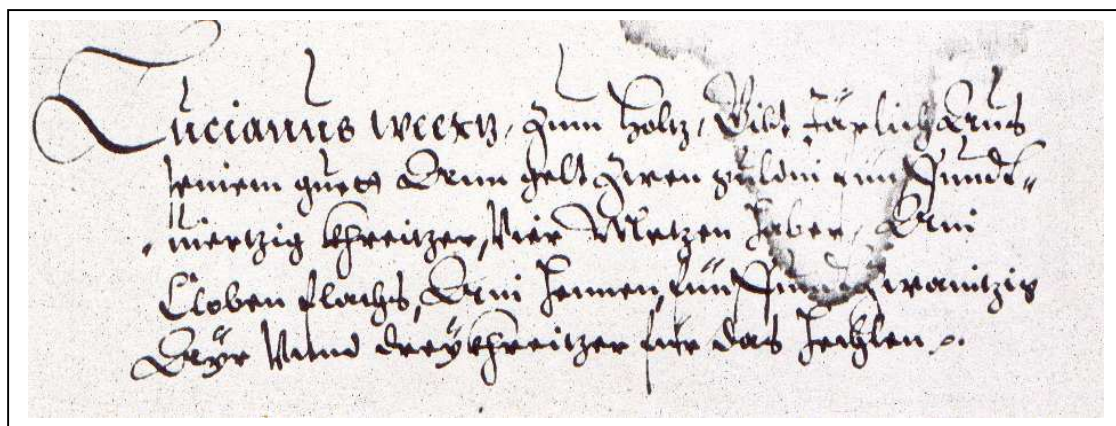 Lucianus weerz, Zum holtz, Gibt Järlich Aus
seinem guett Ann gelt Zwen guldin ain Pfundt
viertzig khreitzer, Vier Metzen haber, Drei
Cloben flachs, Drei hennen, fünfundzwaintzig
Ayr Vnnd dreÿ khreitzer für das hechlen